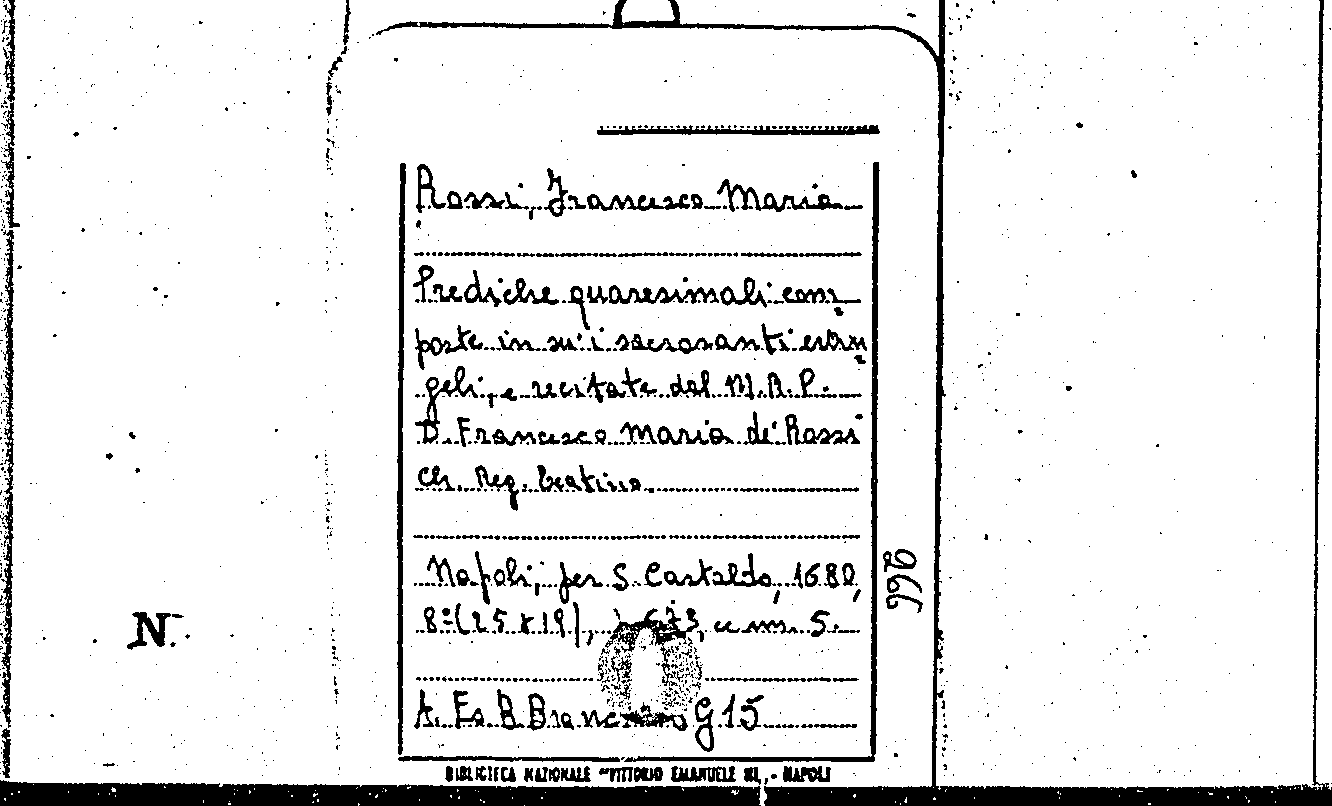 Rossi, Francesco Maria
Prediche quaresimali com=
poste in su i sacrosanti evan=
geli, e recitate dal M.R.P.
D. Francesco Maria de' Rossi
Ch. Reg. Teatino.
Napoli, per S. Castaldo, 1680,
8º (25 x 19), 673, cc nn. 5.
966
N.
A. Es B Branc G 15
BIBLIOTECA NAZIONALE "VITTORIO EMANUELE III" - NAPOLI